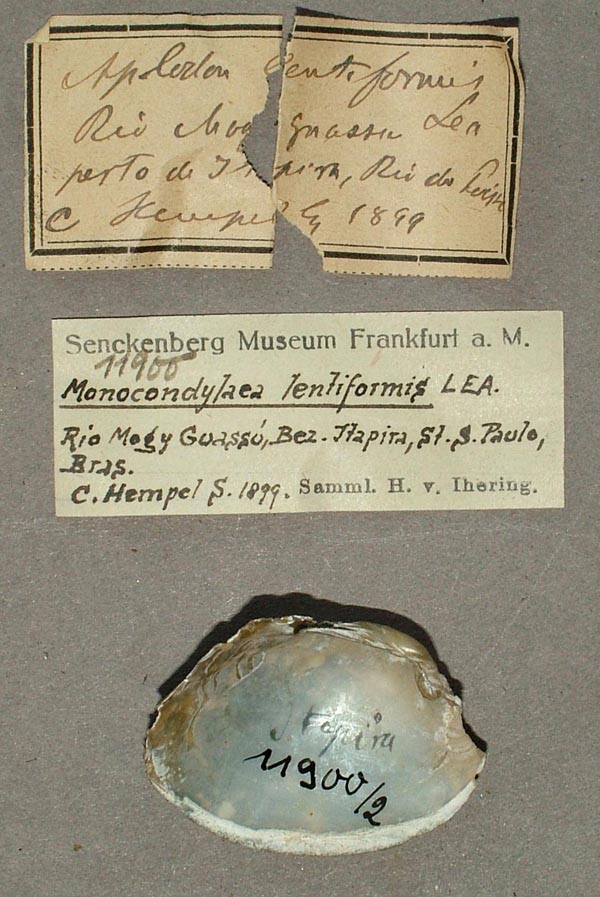 Aplodon lentiformis
Rio Mogy guassu Lea
perto de Itapira, Rio do Peixe
C Hempel 1899
Senckenberg Museum Frankfurt a. M.
11900
Monocondylaea lentiformis LEA.
Rio Mogy Guassú, Bez. Itapira, St. S. Paulo,
Bras.
C. Hempel S. 1899. Samml. H. v. Ihering.
Itapira
11900/2